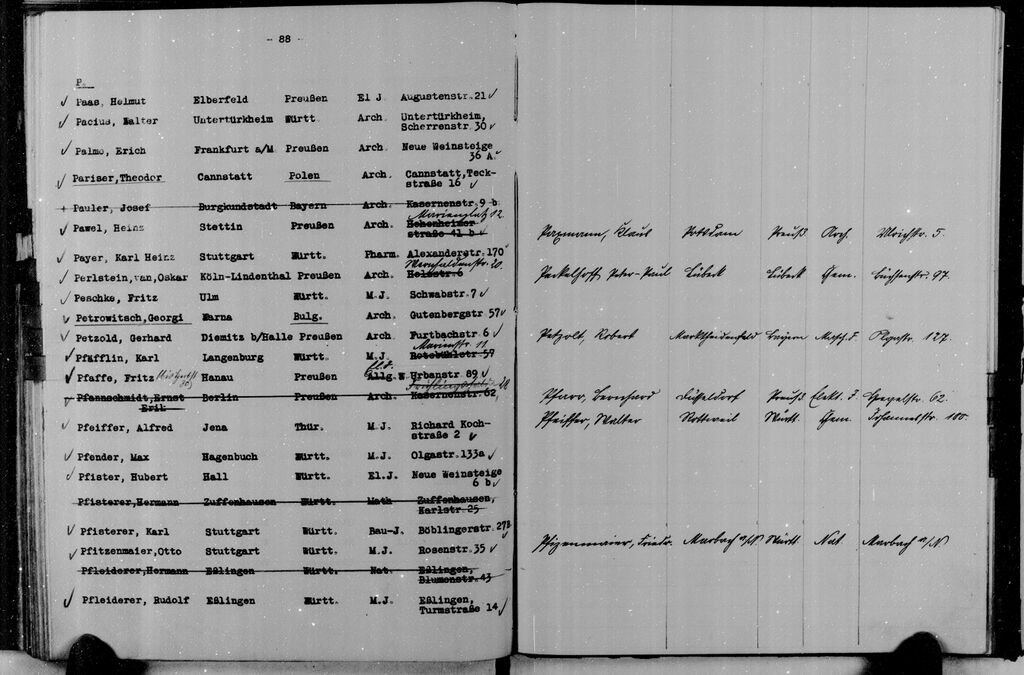 - 88 -
P.
✓ Paas, Helmut Elberfeld Preußen El J. Augustenstr. 21 ✓
✓ Pacius, Walter Untertürkheim Württ. Arch. Untertürkheim,
Scherrenstr. 30 ✓
✓ Palmo, Erich Frankfurt a/M Preußen Arch. Neue Weinsteige
36 A. ✓
✓ Pariser, Theodor Cannstatt Polen Arch. Cannstatt, Teck-
straße 16 ✓
+ Pauler, Josef Burgkundstadt Bayern Arch. Kasernenstr. 9 b
Marienplatz 12.
✓ Pawel, Heinz Stettin Preußen Arch. Hohenheimer
straße 41 b ✓
✓ Payer, Karl Heinz Stuttgart Württ. Pharm. Alexanderstr. 170
20.
✓ Perlstein, van, Oskar Köln-Lindenthal Preußen Arch. 6
✓ Peschke, Fritz Ulm Württ. M.J. Schwabstr. 7 ✓
✓ Petrowitsch, Georgi Warna Bulg. Arch. Gutenbergstr 57 ✓
✓ Petzold, Gerhard Diemitz b/Halle Preußen Arch. Furtbachstr 6 ✓
11
✓ Pfäfflin, Karl Langenburg Württ. M.J. Rotebühlstr 57
El.J.
✓ Pfaffe, Fritz Hanau Preußen Allg. W. Urbanstr 89 ✓
✓ Pfannschmidt, Ernst Berlin Preußen Arch. Kasernenstr 62,
Erik
✓ Pfeiffer, Alfred Jena Thür. M.J. Richard Koch-
straße 2 ✓
✓ Pfender, Max Hagenbuch Württ. M.J. Olgastr. 133a ✓
✓ Pfister, Hubert Hall Württ. El.J. Neue Weinsteige
6 b ✓
Pfisterer, Hermann Zuffenhausen Württ. Math Zuffenhausen,
Karlstr 25
✓ Pfisterer, Karl Stuttgart Württ. Bau-J. Böblingerstr
✓ Pfitzenmaier, Otto Stuttgart Württ. M.J. Rosenstr. 35 ✓
Pfleiderer, Hermann Eßlingen Württ. Nat. Eßlingen,
Blumenstr. 43
✓ Pfleiderer, Rudolf Eßlingen Württ. M.J. Eßlingen,
Turmstraße 14 ✓
Klaus Potsdam Preuß Arch. Ulrichstr. 5.
Peter-Paul Lübeck Lübeck Chem. Büchsenstr. 97.
Petzolt, Robert Marktheidenfeld Bayern Masch. J. Olgastr. 127.
Pfarr, Bernhard Düsseldorf Preuß Elekt. J. 62.
Pfeiffer, Walter Rottweil Württ. Chem. Johannesstr. 100.
Pfizenmaier, Friedr. Marbach a/N Württ. Nat. Marbach a/N